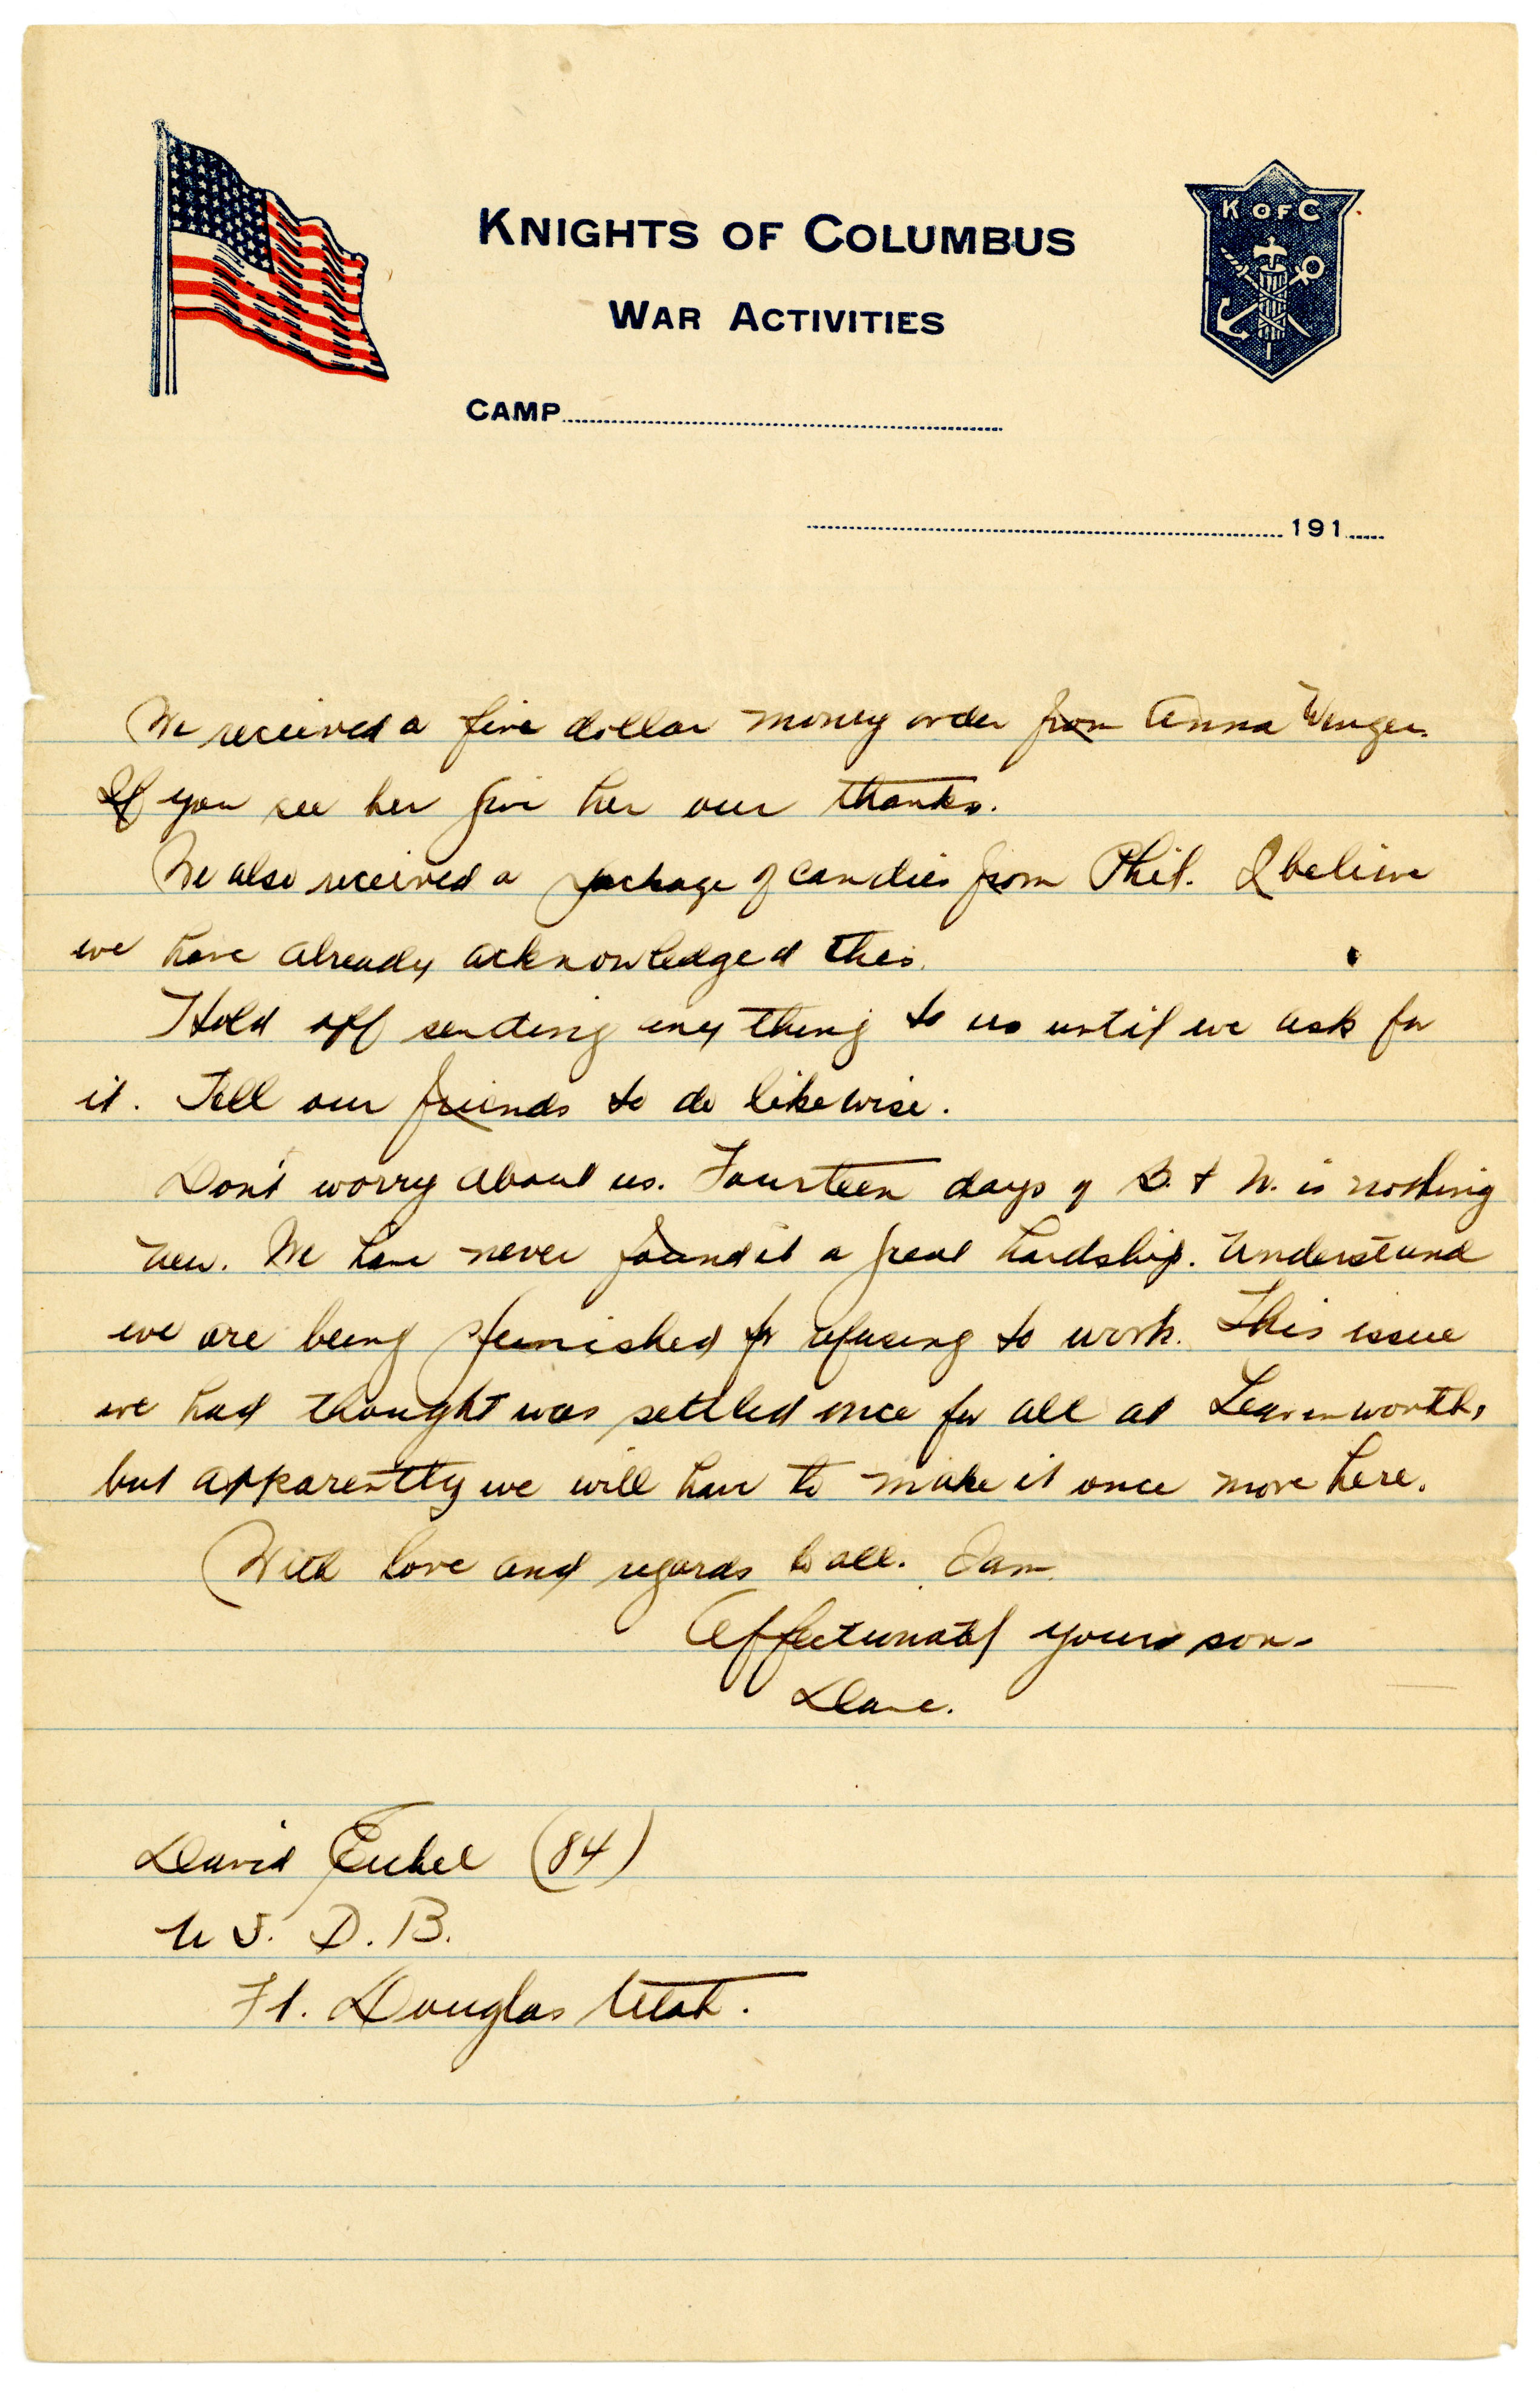 K OF C
KNIGHTS OF COLUMBUS
WAR ACTIVITIES
CAMP
191
We received a five dollar money order from Anna Wenger.
If you see her give her our thanks.
We also received a package of candies from Phil. I believe
we have already acknowledged this.
Hold off sending any thing to us until we ask for
it. Tell our friends to do likewise.
Don't worry about us. Fourteen days of B. & W. is nothing
new. We have never found it a great hardship. Understand
we are being punished for refusing to work. This issue
we had thought was settled once for all at Leavenworth,
but apparently we will have to make it once more here.
With love and regards to all. I am
Affectionately your son-
Dave.
David Eichel (84)
U S. D. B.
Ft. Douglas Utah.